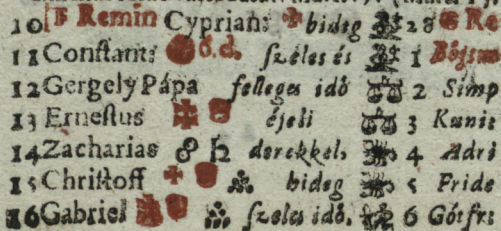 10 B Remin Cyprian: bideg 28 Re
11 Conſtantː 6. d. ſzéles és 1 Böjtm
12 Gergely Pápa felleges idö 2 Simp
13 Erneſtus éjeli 3 Kunis
14 Zacharias ☍ ♄ derekkel. 4 Adri
15 Chriſtoff bideg 5 Fride
16 Gabriel ſzeles idö. 6 Gótfri